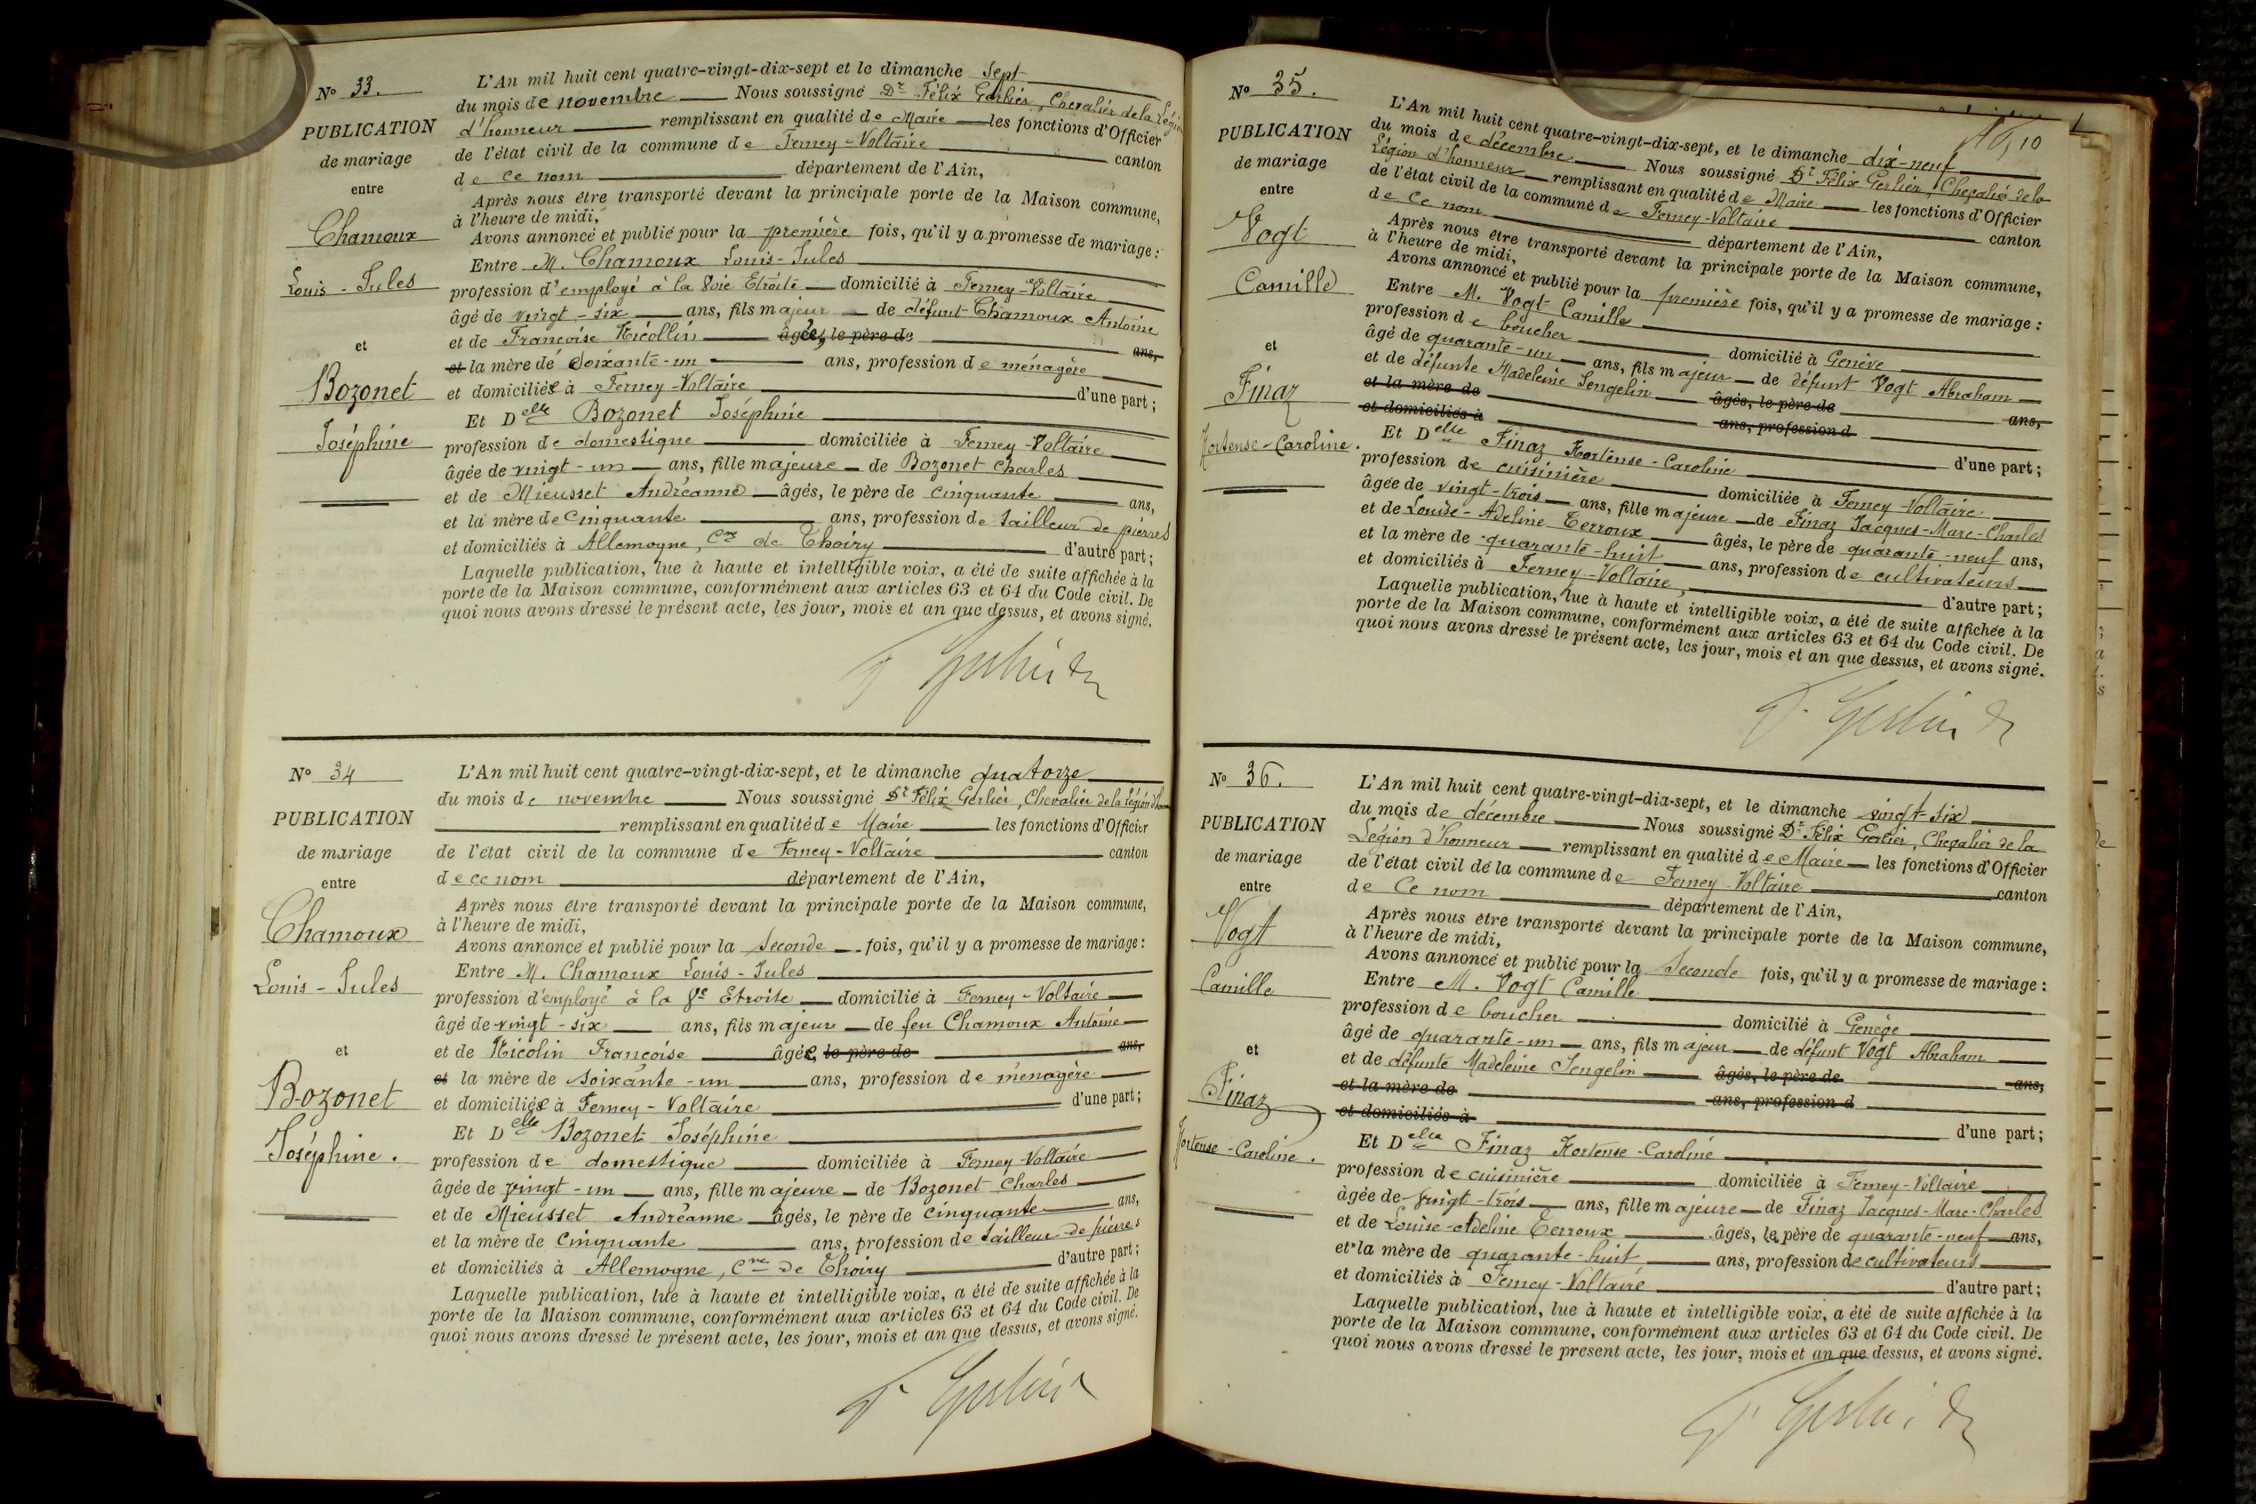 N° 33.
PUBLICATION
de mariage
entre
Chamoux
Louis-Jules
et
Bozonet
Joséphine
L'An mil huit cent quatre-vingt-dix-sept et le dimanche sept
du mois de novembre Nous soussigné Dr Félix Gerlier, Chevalier de la Légion
d'honneur remplissant en qualité de Maire les fonctions d'Officier
de l'état civil de la commune de Ferney-Voltaire canton
de ce nom département de l'Ain,
Après nous être transporté devant la principale porte de la Maison commune,
à l'heure de midi,
Avons annoncé et publié pour la première fois, qu'il y a promesse de mariage :
Entre M. Chamoux Louis-Jules
profession d'employé à la Voie Etroite domicilié à Ferney-Voltaire
âgé de vingt-six ans, fils majeur de défunt Chamoux Antoine
et de Françoise Nicollin âgée, le père de ans,
et la mère de soixante-un ans, profession de ménagère
et domiciliée à Ferney-Voltaire d'une part ;
Et Delle Bozonet Joséphine
profession de domestique domiciliée à Ferney-Voltaire
âgée de vingt-un ans, fille majeure de Bozonet Charles
et de Mieusset Andréanne âgés, le père de cinquante ans,
et la mère de cinquante ans, profession de tailleur de pierres
et domiciliés à Allemogne, Cne de Thoiry d'autre part ;
Laquelle publication, lue à haute et intelligible voix, a été de suite affichée à la
porte de la Maison commune, conformément aux articles 63 et 64 du Code civil. De
quoi nous avons dressé le présent acte, les jour, mois et an que dessus, et avons signé.
F Gerlier Dr
N° 34
PUBLICATION
de mariage
entre
Chamoux
Louis-Jules
et
Bozonet
Joséphine.
L'An mil huit cent quatre-vingt-dix-sept, et le dimanche quatorze
du mois de novembre Nous soussigné Dr Félix Gerlier, Chevalier de la Légion d'hon
remplissant en qualité de Maire les fonctions d'Officier
de l'état civil de la commune de Ferney-Voltaire canton
de ce nom département de l'Ain,
Après nous être transporté devant la principale porte de la Maison commune,
à l'heure de midi,
Avons annoncé et publié pour la seconde fois, qu'il y a promesse de mariage :
Entre M. Chamoux Louis-Jules
profession d'employé à la Ve Etroite domicilié à Ferney-Voltaire
âgé de vingt-six ans, fils majeur de feu Chamoux Antoine
et de Nicolin Françoise âgée, le père de ans,
et la mère de soixante-un ans, profession de ménagère
et domiciliée à Ferney-Voltaire d'une part ;
Et Delle Bozonet Joséphine
profession de domestique domiciliée à Ferney-Voltaire
âgée de vingt-un ans, fille majeure de Bozonet Charles
et de Mieusset Andréanne âgés, le père de cinquante ans,
et la mère de cinquante ans, profession de tailleur de pierres
et domiciliés à Allemogne, Cne de Thoiry d'autre part ;
Laquelle publication, lue à haute et intelligible voix, a été de suite affichée à la
porte de la Maison commune, conformément aux articles 63 et 64 du Code civil. De
quoi nous avons dressé le présent acte, les jour, mois et an que dessus, et avons signé.
F Gerlier
N° 35.
PUBLICATION
de mariage
entre
Vogt
Camille
et
Finaz
Hortense-Caroline.
10
L'An mil huit cent quatre-vingt-dix-sept, et le dimanche dix-neuf
du mois de décembre Nous soussigné Dr Félix Gerlier, Chevalier de la
Légion d'honneur remplissant en qualité de Maire les fonctions d'Officier
de l'état civil de la commune de Ferney-Voltaire canton
de ce nom département de l'Ain,
Après nous être transporté devant la principale porte de la Maison commune,
à l'heure de midi,
Avons annoncé et publié pour la première fois, qu'il y a promesse de mariage :
Entre M. Vogt Camille
profession de boucher domicilié à Genève
âgé de quarante-un ans, fils majeur de défunt Vogt Abraham
et de défunte Madeleine Sengelin âgés, le père de ans,
et la mère de ans, profession d
et domiciliés à d'une part ;
Et Delle Finaz Hortense-Caroline
profession de cuisinière domiciliée à Ferney-Voltaire
âgée de vingt-trois ans, fille majeure de Finaz Jacques-Marc-Charles
et de Louise-Adeline Terroux âgés, le père de quarante-neuf ans,
et la mère de quarante-huit ans, profession de cultivateurs
et domiciliés à Ferney-Voltaire, d'autre part ;
Laquelle publication, lue à haute et intelligible voix, a été de suite affichée à la
porte de la Maison commune, conformément aux articles 63 et 64 du Code civil. De
quoi nous avons dressé le présent acte, les jour, mois et an que dessus, et avons signé.
F. Gerlier Dr
N° 36.
PUBLICATION
de mariage
entre
Vogt
Camille
et
Finaz
Hortense-Caroline.
L'An mil huit cent quatre-vingt-dix-sept, et le dimanche vingt-six
du mois de décembre Nous soussigné Dr Félix Gerlier, Chevalier de la
Légion d'honneur remplissant en qualité de Maire les fonctions d'Officier
de l'état civil de la commune de Ferney-Voltaire canton
de ce nom département de l'Ain,
Après nous être transporté devant la principale porte de la Maison commune,
à l'heure de midi,
Avons annoncé et publié pour la seconde fois, qu'il y a promesse de mariage :
Entre M. Vogt Camille
profession de boucher domicilié à Genève
âgé de quarante-un ans, fils majeur de défunt Vogt Abraham
et de défunte Madeleine Sengelin âgés, le père de ans,
et la mère de ans, profession d
et domiciliés à d'une part ;
Et Delle Finaz Hortense-Caroline
profession de cuisinière domiciliée à Ferney-Voltaire
âgée de vingt-trois ans, fille majeure de Finaz Jacques-Marc-Charles
et de Louise-Adeline Terroux âgés, le père de quarante-neuf ans,
et la mère de quarante-huit ans, profession de cultivateurs
et domiciliés à Ferney-Voltaire d'autre part ;
Laquelle publication, lue à haute et intelligible voix, a été de suite affichée à la
porte de la Maison commune, conformément aux articles 63 et 64 du Code civil. De
quoi nous avons dressé le présent acte, les jour, mois et an que dessus, et avons signé.
F Gerlier Dr